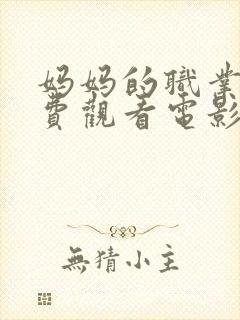 妈妈的職業
費觀看電影
無猜小主